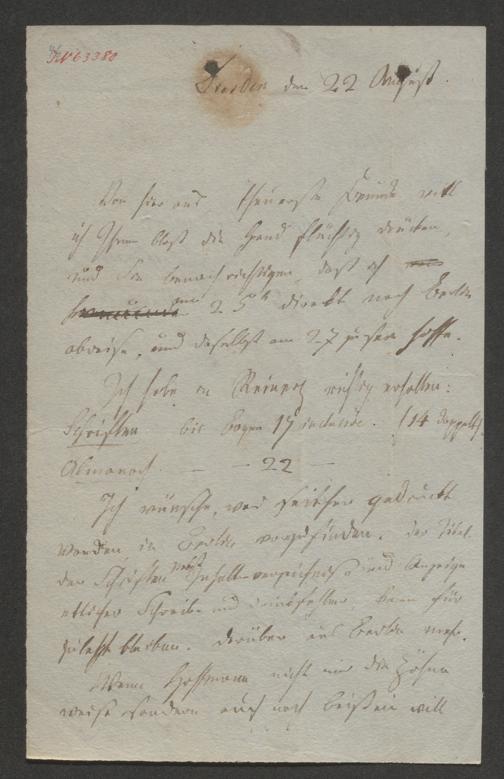 N63380
Dresden den 22 August.
Von hier aus theuerste Freunde will
ich Ihnen bloß die Hand flüchtig drücken,
und Sie benachrichtigen, daß ich
am 25t direkt nach Berlin
abreise, und daselbst am 27 zu sein hoffe.
Ich habe in Reinerz richtig erhalten:
Schriften bis Bogen 17 inclusive. (14 doppelt).
Almanach. — — 22 —
Ich wünsche, was seither gedruckt
worden, in Berlin vorzufinden. Der Titel
der Schriften nebst Inhaltsverzeichniß und Anzeige
etlicher Schreib- und Druckfehler, kann für
zuletzt bleiben. Darüber aus Berlin mehr.
Wenn Hoffmann nicht nur die Zähne
weist sondern auch noch beißen will